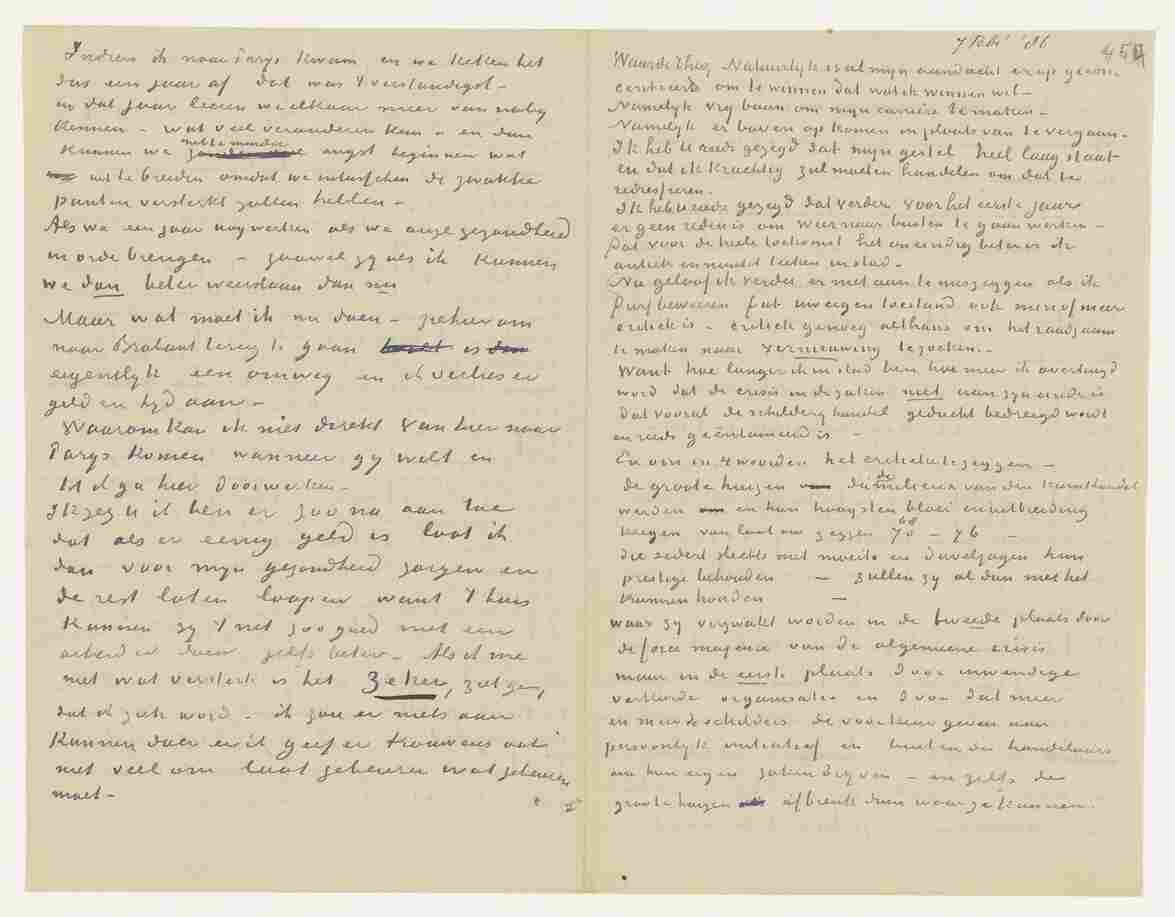 Indien ik naar Parijs kwam en we hielden het
dus een jaar af dat was 't verstandigst –
in dat jaar leeren we elkaar meer van naby
kennen – wat veel veranderen kan – en dan
kunnen we met te minder angst beginnen wat
uit te breiden omdat we intusschen de zwakke
punten versterkt zullen hebben –
Als we een jaar nog werken als we onze gezondheid
in orde brengen – zoowel gy als ik kunnen
we dan beter weerstaan dan nu
Maar wat moet ik nu doen – zie hier om
naar Brabant terug te gaan is
eigentlyk een omweg en ik verlies er
geld en tyd aan –
Waarom kan ik niet direkt van hier naar
Parys komen wanneer gy wilt en
tot ik ga hier doorwerken –
Ik zeg u ik ben er zoo na aan toe
dat als er eenig geld is laat ik
dan voor myn gezondheid zorgen en
de rest laten loopen want t'huis
kunnen zy 't net zoo goed met een
arbeider doen zelfs beter – Als ik me
niet wat versterk is het zeker, ziet ge,
dat ik ziek word – ik zou er niets aan
kunnen doen en ik geef er trouwens ook
niet veel om laat gebeuren wat gebeuren
moet –
7 Febr '86
Waarde Theo, Natuurlyk is al myn aandacht erop gecon-
centreerd om te winnen dat wat ik winnen wil –
Namelyk vry baan om myn carrière te maken –
Namelyk er boven op komen in plaats van te vergaan –
Ik heb U reeds gezegd dat myn gestel heel laag staat
en dat ik krachtig zal moeten handelen om dat te
redresseren.
Ik heb U reeds gezegd dat verder voor het eerste jaar
er geen reden is om weer naar buiten te gaan werken –
Dat voor de heele toekomst het oneindig beter is ik
antiek en model teeken in stad –
Nu geloof ik verder er niet aan te miszeggen als ik
durf beweeren dat uw eigen toestand ook min of meer
critiek is – critiek genoeg althans om het raadzaam
te maken naar vernieuwing te zoeken –
Want hoe langer ik in stad ben hoe meer ik overtuigd
word dat de crisis in de zaken niet aan zyn einde is
dat vooral de schilderyhandel geducht bedreigd wordt
en reeds geëntameerd is –
En om in 4 woorden het critieke te zeggen –
de groote huizen die de milieus van den kunsthandel
werden en hun hoogsten bloei en uitbreiding
kregen van laat ons zeggen 68 – 76 –
die sedert slechts met moeite en duveljagen hun
prestige behouden – zullen zy al dan niet het
kunnen houden –
waar zy verzwakt worden in de tweede plaats door
de force majeure van de algemeene crisis
maar in de eerste plaats door inwendige
verkeerde organisatie en door dat meer
en meer de schilders de voorkeur geven aan
persoonlyk initiatief en buiten de handelaars
om hun eigen zaken dryven – en zelfs de
groote huizen afbreuk doen waar ze kunnen.